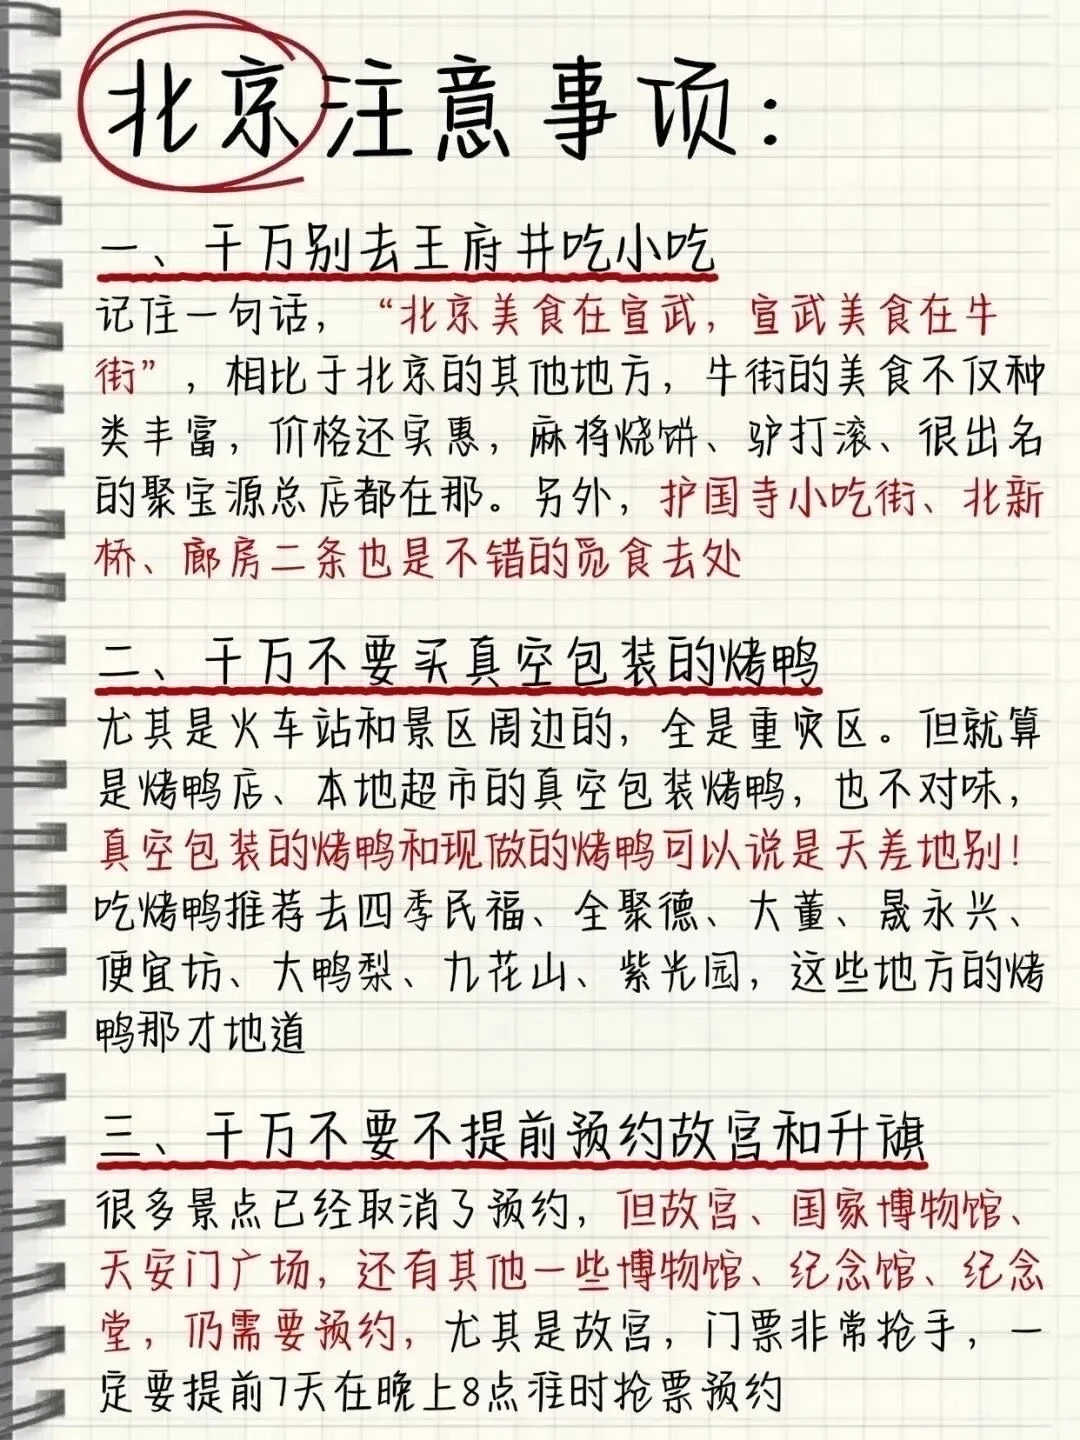 北京注意事项：
一、千万别去王府井吃小吃
记住一句话，“北京美食在宣武，宣武美食在牛
街”，相比于北京的其他地方，牛街的美食不仅种
类丰富，价格还实惠，麻将烧饼、驴打滚、很出名
的聚宝源总店都在那。另外，护国寺小吃街、北新
桥、廊房二条也是不错的觅食去处
二、千万不要买真空包装的烤鸭
尤其是火车站和景区周边的，全是重灾区。但就算
是烤鸭店、本地超市的真空包装烤鸭，也不对味，
真空包装的烤鸭和现做的烤鸭可以说是天差地别！
吃烤鸭推荐去四季民福、全聚德、大董、晟永兴、
便宜坊、大鸭梨、九花山、紫光园，这些地方的烤
鸭那才地道
三、千万不要不提前预约故宫和升旗
很多景点已经取消了预约，但故宫、国家博物馆、
天安门广场，还有其他一些博物馆、纪念馆、纪念
堂，仍需要预约，尤其是故宫，门票非常抢手，一
定要提前7天在晚上8点准时抢票预约